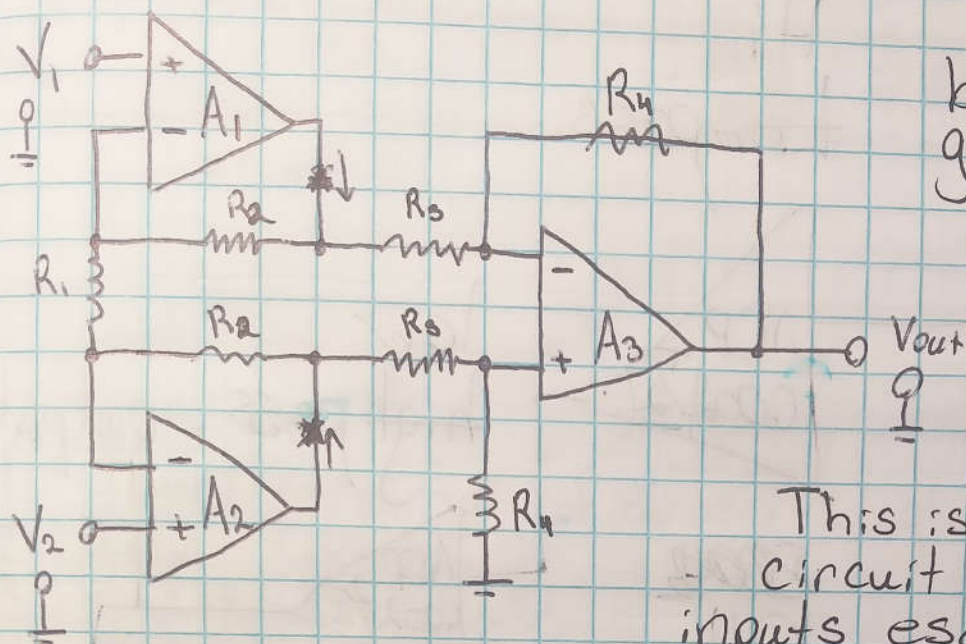 V₁
+
A₁
-
R₄
g
R₂
R₃
R₁
-
R₂
R₃
A₃
+
Vout
-
V₂
+
A₂
R₄
This is
circuit
inputs es